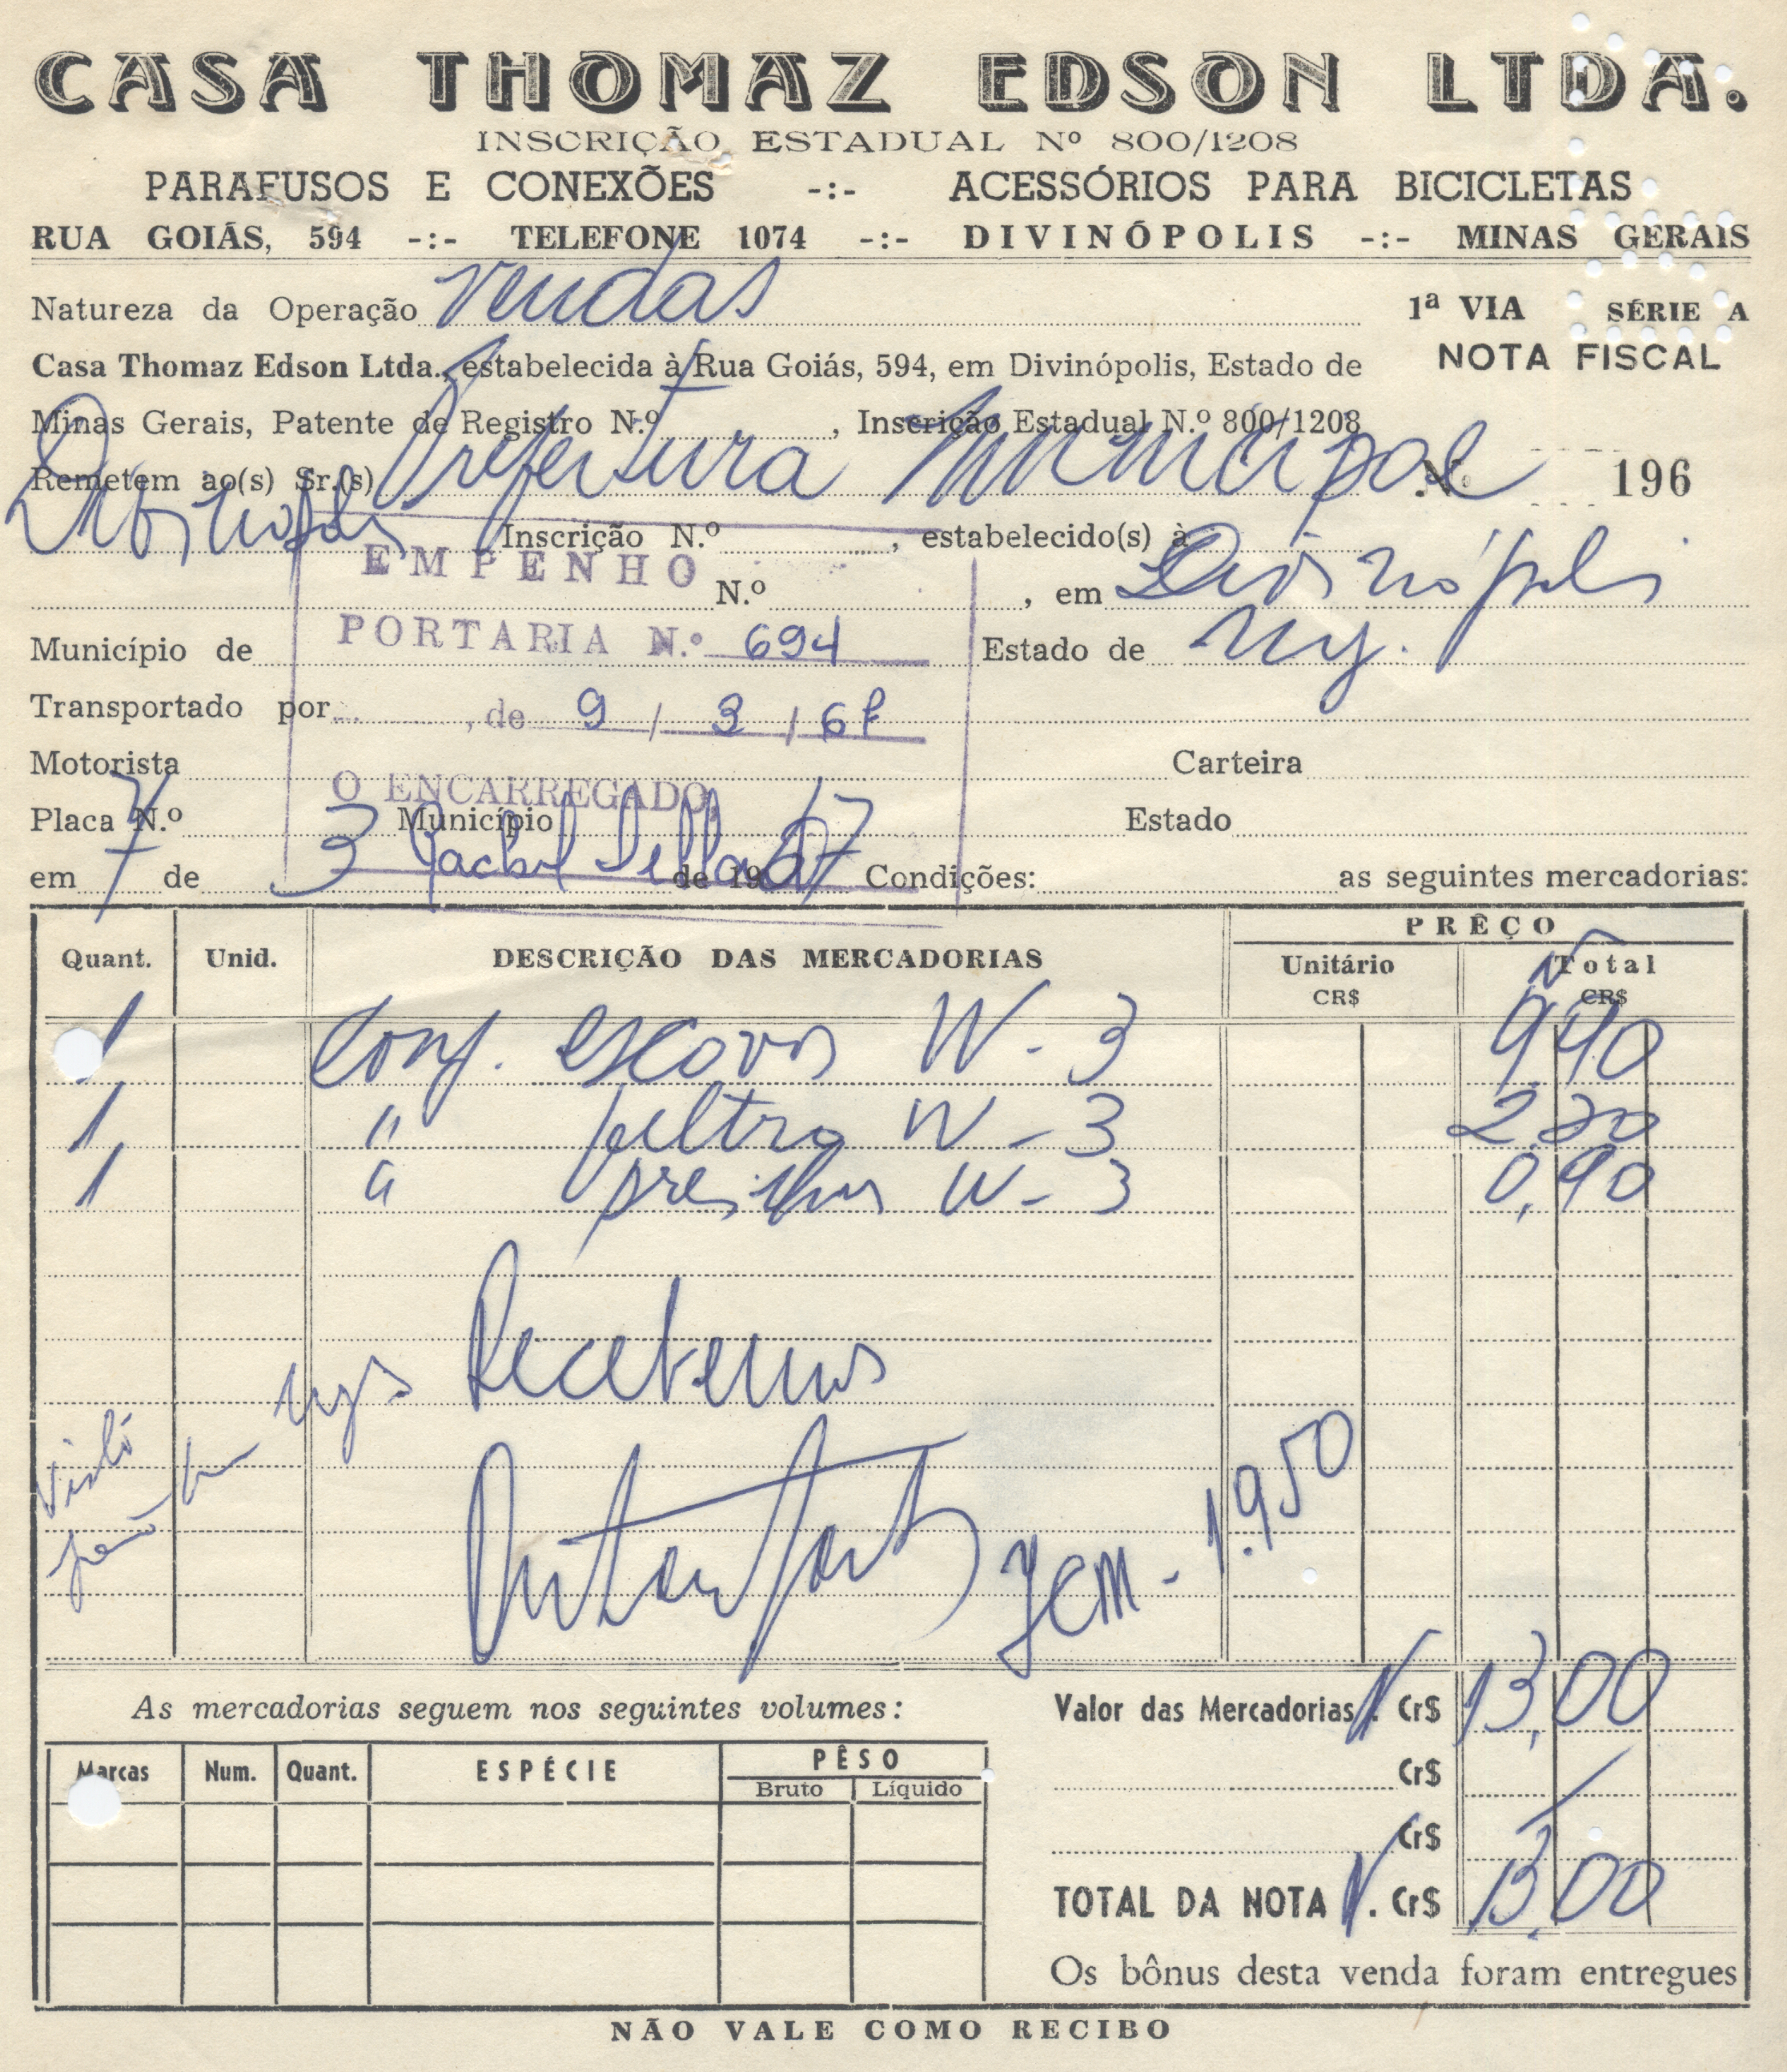 CASA THOMAZ EDSON LTDA.
INSCRIÇÃO ESTADUAL Nº 800/1208
PARAFUSOS E CONEXÕES -:- ACESSÓRIOS PARA BICICLETAS
RUA GOIÁS, 594 -:- TELEFONE 1074 -:- DIVINÓPOLIS -:- MINAS GERAIS
Natureza da Operação Vendas 1ª VIA SÉRIE A
NOTA FISCAL
Casa Thomaz Edson Ltda., estabelecida à Rua Goiás, 594, em Divinópolis, Estado de
Minas Gerais, Patente de Registro N.º , Inscrição Estadual N.º 800/1208
Remetem ao(s) Sr.(s) Prefeitura Municipal Nº 196
Divinópolis Inscrição N.º , estabelecido(s) à
EMPENHO
N.º , em Divinópolis
PORTARIA N.º 694
Município de Estado de Mg.
Transportado por , de 9 / 3 / 67
Motorista Carteira
O ENCARREGADO,
Placa N.º Município Estado
em 7 de 3 de 1967 Condições: as seguintes mercadorias:
Quant. Unid. DESCRIÇÃO DAS MERCADORIAS PRÊÇO
Unitário CR$ Total CR$
1 Conj. escovas W-3 9,90
1, " feltro W-3 2,20
1 " presilhas W-3 0,90
Recebemos
Visto
JCM - 1.950
As mercadorias seguem nos seguintes volumes:
Marcas Num. Quant. ESPÉCIE PÊSO
Bruto Líquido
Valor das Mercadorias . Cr$ 13,00
Cr$
Cr$
TOTAL DA NOTA . Cr$ 13,00
Os bônus desta venda foram entregues
NÃO VALE COMO RECIBO